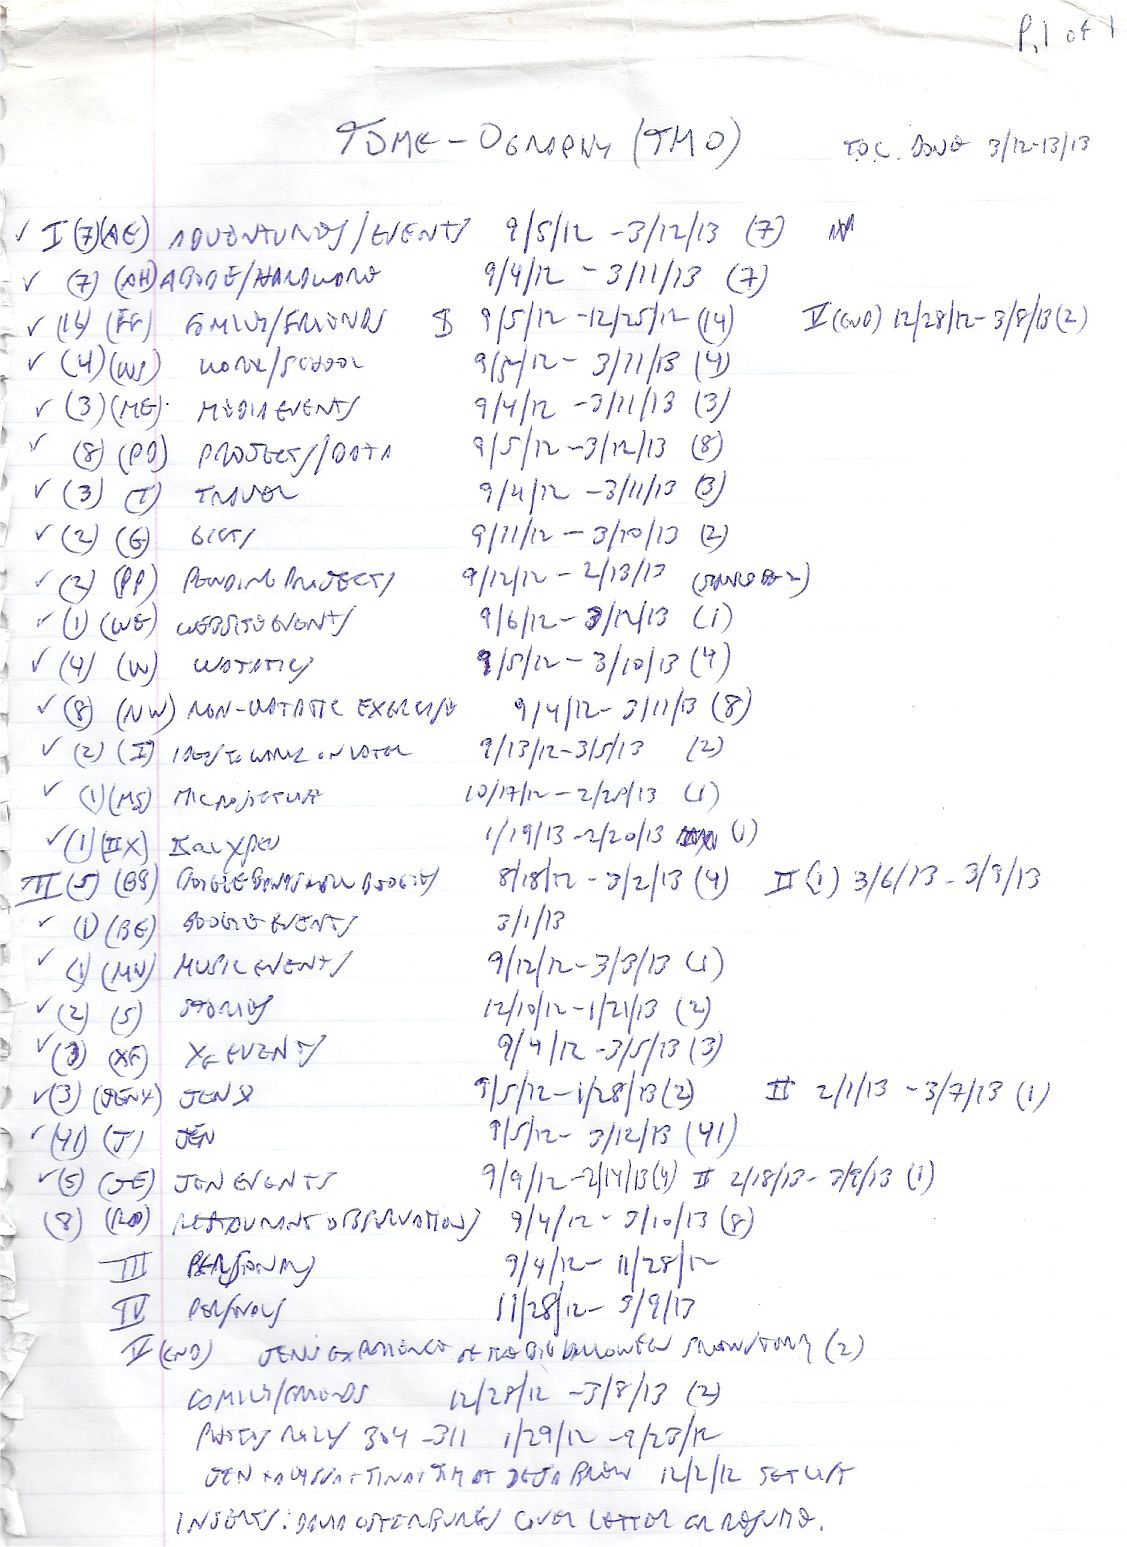 P. 1 of 1
TOME-OGRAPHY (TMO) T.O.C. DONE 3/12-13/13
✓ I (7) (AE) ADVENTURES/EVENTS 9/5/12 - 3/12/13 (7)
✓ (7) (AH) ABODE/HARDWARE 9/4/12 - 3/11/13 (7)
✓ (16) (FF) FAMILY/FRIENDS I 9/5/12 - 12/25/12 (14) V (END) 12/28/12 - 3/8/13 (2)
✓ (4) (WS) WORK/SCHOOL 9/5/12 - 3/11/13 (4)
✓ (3) (ME) MEDIA EVENTS 9/4/12 - 3/11/13 (3)
✓ (8) (PD) PROJECTS/DATA 9/5/12 - 3/12/13 (8)
✓ (3) (T) TRAVEL 9/4/12 - 3/11/13 (3)
✓ (2) (G) GIFTS 9/11/12 - 3/10/13 (2)
✓ (2) (PP) PENDING PROJECTS 9/12/12 - 2/13/13
✓ (1) (WE) WEBSITE EVENTS 9/6/12 - 3/12/13 (1)
✓ (4) (W) WATATIC 9/5/12 - 3/10/13 (4)
✓ (8) (NW) NON-WATATIC EXERCISE 9/4/12 - 3/11/13 (8)
✓ (2) (I) IDEAS TO WORK ON LATER 9/13/12 - 3/5/13 (2)
✓ (1) (MS) 10/17/12 - 2/28/13 (1)
✓ (1) (IIX) 1/19/13 - 2/20/13 (1)
III (5) (GS) 8/18/12 - 3/2/13 (4) II (1) 3/6/13 - 3/9/13
✓ (1) (GE) GOOGLE EVENTS 3/1/13
✓ (1) (MU) MUSIC EVENTS 9/12/12 - 3/3/13 (1)
✓ (2) (S) STORIES 12/10/12 - 1/21/13 (2)
✓ (3) (XF) XF EVENTS 9/4/12 - 3/5/13 (3)
✓ (3) (JENX) JEN X 9/5/12 - 1/28/13 (2) II 2/1/13 - 3/7/13 (1)
✓ (41) (J) JEN 9/5/12 - 3/12/13 (41)
✓ (5) (JE) JEN EVENTS 9/9/12 - 2/14/13 (4) II 2/18/13 - 3/9/13 (1)
(8) (RO) RESTAURANT OBSERVATIONS 9/4/12 - 3/10/13 (8)
III PERSONALS 9/4/12 - 11/28/12
IV PERSONALS 11/28/12 - 3/9/13
V (END) JEN'S EXPERIENCE AT THE HALLOWEEN SNOWSTORM (2)
FAMILY/FRIENDS 12/28/12 - 3/8/13 (2)
PHOTOS ROLLS 304 - 311 1/29/12 - 9/23/12
JEN + + TINA + TIM AT DEJA BREW 12/2/12 SET LIST
INSERTS: COVER LETTER OR RESUME.